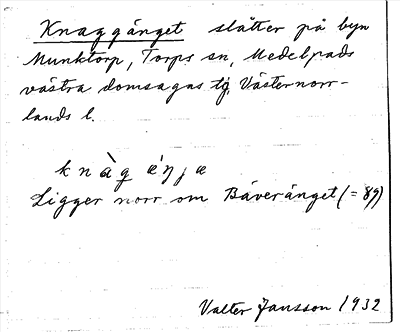 Knaggänget slåtter på byn
Munktorp, Torps sn, Medelpads
västra domsagas tg, Västernorr-
lands l.
k n à g ǽ ŋ j æ
Ligger norr om Bäveränget (= 89)
Valter Jansson 1932